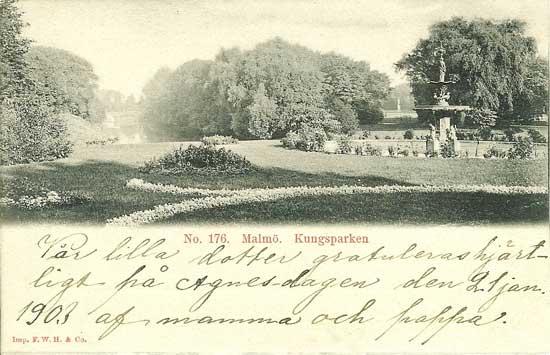 No. 176. Malmö. Kungsparken
Vår lilla dotter gratuleras hjärt-
ligt på Agnesdagen den 21 jan.
1903 af mamma och pappa.
Imp. F. W. H. & Co.